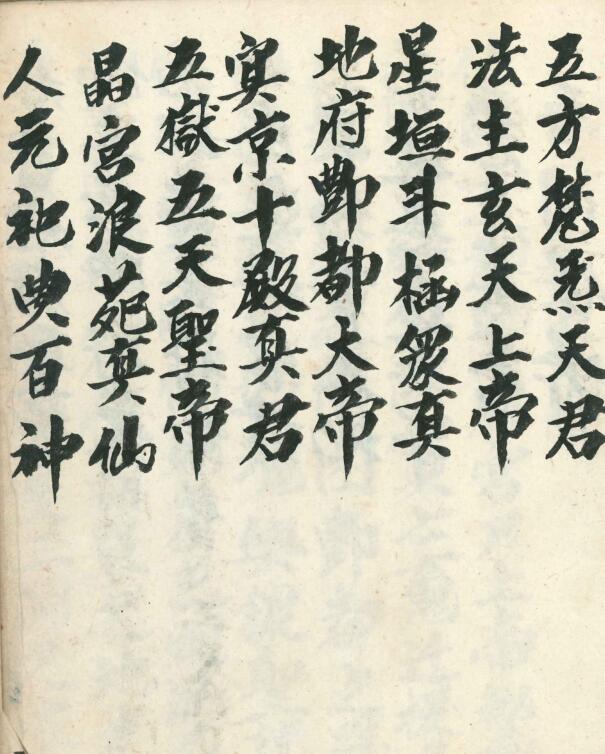 五方梵炁天君
法主玄天上帝
星垣斗極眾真
地府酆都大帝
冥京十殿真君
五嶽五天聖帝
晶宮浪苑真仙
人元祀典百神